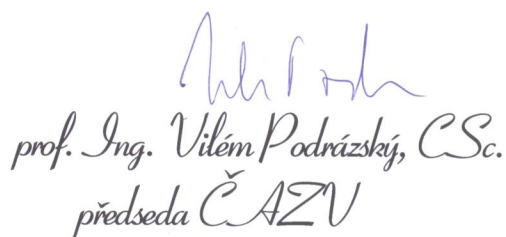 prof. Ing. Vilém Podrázský, CSc.
předseda ČAZV